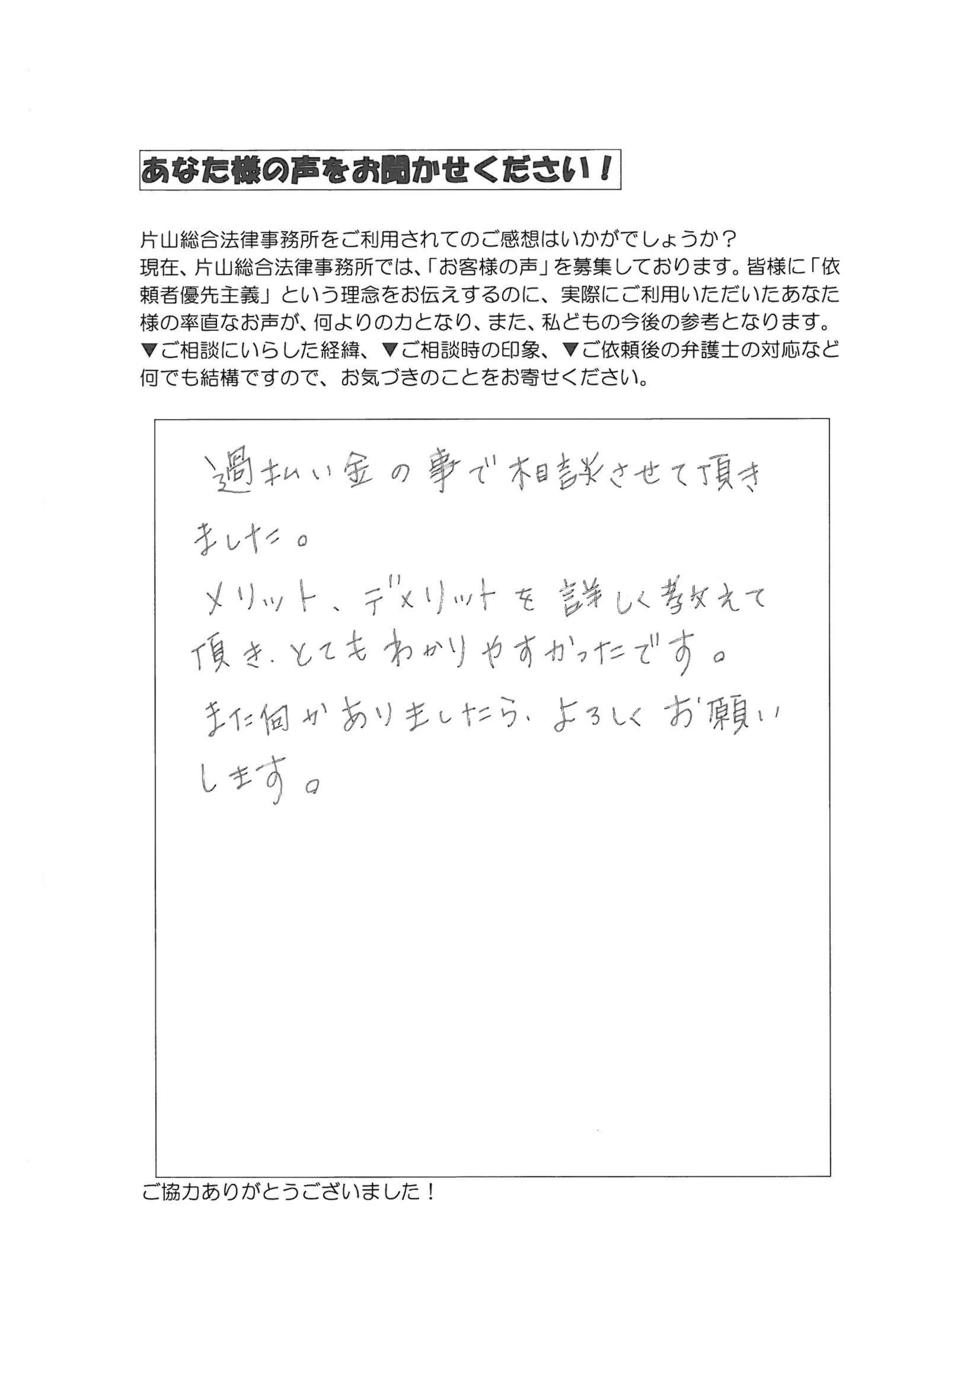 あなた様の声をお聞かせください！
片山総合法律事務所をご利用されてのご感想はいかがでしょうか？
現在、片山総合法律事務所では、「お客様の声」を募集しております。皆様に「依
頼者優先主義」という理念をお伝えするのに、実際にご利用いただいたあなた
様の率直なお声が、何よりの力となり、また、私どもの今後の参考となります。
▼ご相談にいらした経緯、▼ご相談時の印象、▼ご依頼後の弁護士の対応など
何でも結構ですので、お気づきのことをお寄せください。
過払い金の事で相談させて頂き
ました。
メリット、デメリットを詳しく教えて
頂き、とてもわかりやすかったです。
また何かありましたら、よろしくお願い
します。
ご協力ありがとうございました！